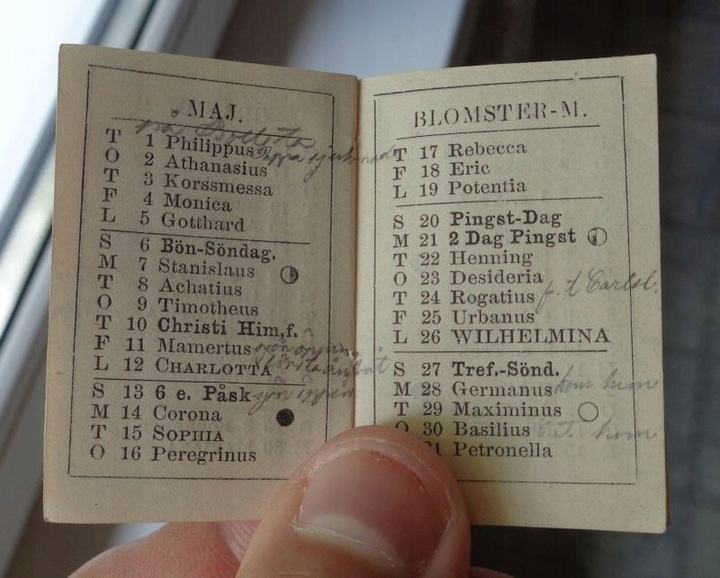 MAJ.
T 1 Philippus
O 2 Athanasius
T 3 Korssmessa
F 4 Monica
L 5 Gotthard
S 6 Bön-Söndag.
M 7 Stanislaus
T 8 Achatius
O 9 Timotheus
T 10 Christi Him,f.
F 11 Mamertus
L 12 CHARLOTTA
S 13 6 e. Påsk
M 14 Corona
T 15 SOPHIA
O 16 Peregrinus
BLOMSTER-M.
T 17 Rebecca
F 18 Eric
L 19 Potentia
S 20 Pingst-Dag
M 21 2 Dag Pingst
T 22 Henning
O 23 Desideria
T 24 Rogatius
F 25 Urbanus
L 26 WILHELMINA
S 27 Tref.-Sönd.
M 28 Germanus kom hem
T 29 Maximinus
O 30 Basilius kom
31 Petronella